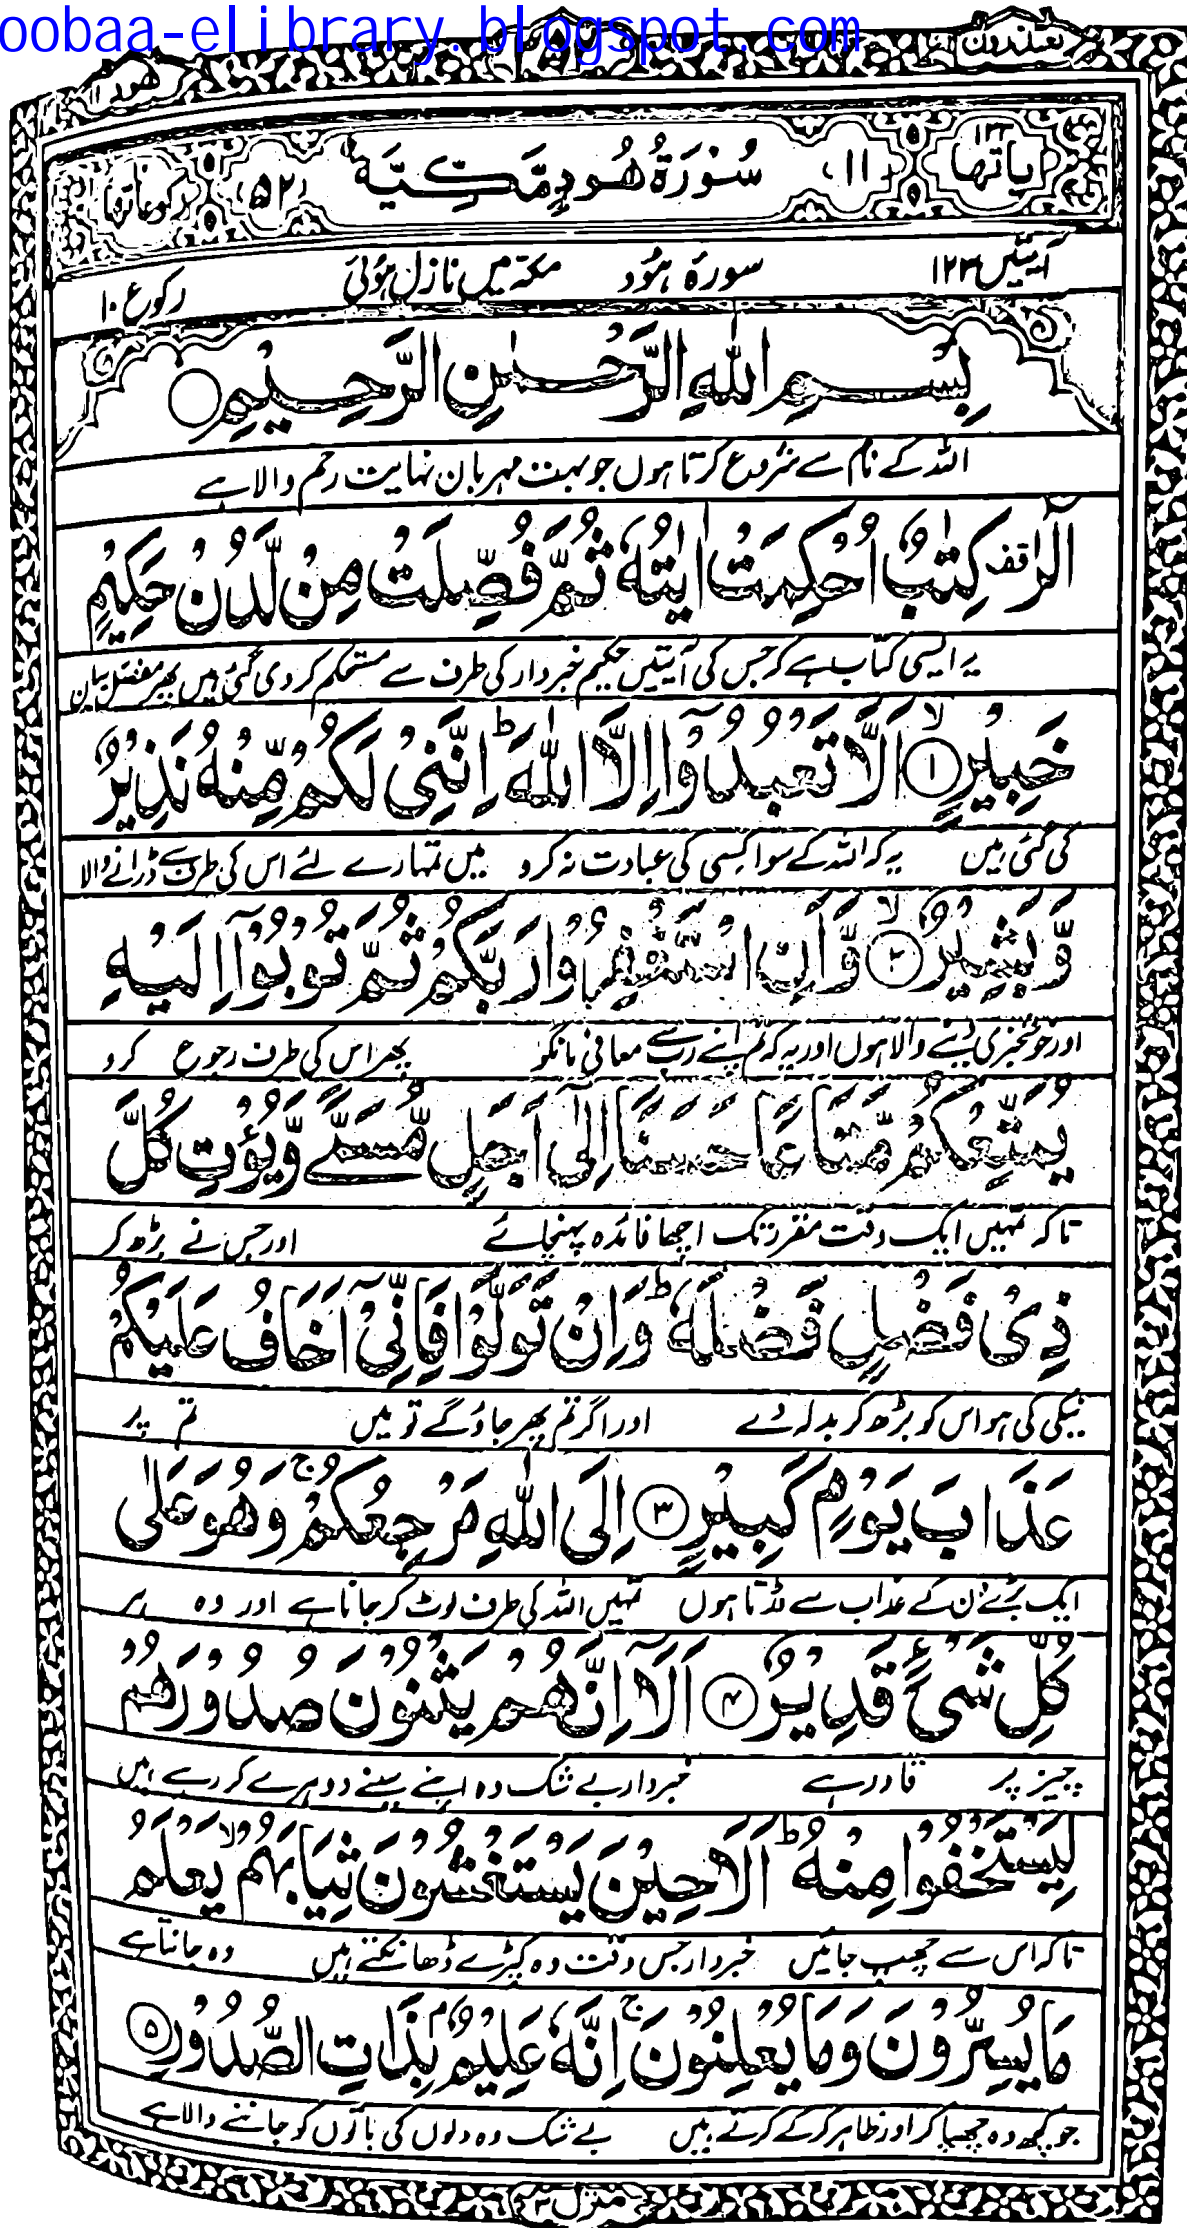 oobaa-elibrary.blogspot.com
يعتذرون
هود ١١
اٰیاتھا ١٢٣
(١١)
سُوْرَةُ هُوْدٍ مَّكِّيَّةٌ
(٥٢)
رکوعاتھا
آیتیں ١٢٣
سورہ ہُود
مکہ میں نازل ہوئی
رکوع ١٠
بِسْمِ اللّٰهِ الرَّحْمٰنِ الرَّحِيْمِ
اللہ کے نام سے شروع کرتا ہوں جو بہت مہربان نہایت رحم والا ہے
الٓرٰ قف كِتٰبٌ اُحْكِمَتْ اٰيٰتُهٗ ثُمَّ فُصِّلَتْ مِنْ لَّدُنْ حَكِيْمٍ
یہ ایسی کتاب ہے کہ جس کی آیتیں حکیم خبردار کی طرف سے مستحکم کر دی گئی ہیں پھر مفصل بیان
خَبِيْرٍ ١ لا اَلَّا تَعْبُدُوْٓا اِلَّا اللّٰهَ ط اِنَّنِيْ لَكُمْ مِّنْهُ نَذِيْرٌ
کی گئی ہیں یہ کہ اللہ کے سوا کسی کی عبادت نہ کرو میں تمہارے لئے اس کی طرف سے ڈرانے والا
وَّبَشِيْرٌ ٢ لا وَّاَنِ اسْتَغْفِرُوْا رَبَّكُمْ ثُمَّ تُوْبُوْٓا اِلَيْهِ
اور خوشخبری دینے والا ہوں اور یہ کہ تم اپنے رب سے معافی مانگو پھر اس کی طرف رجوع کرو
يُمَتِّعْكُمْ مَّتَاعًا حَسَنًا اِلٰٓى اَجَلٍ مُّسَمًّى وَّيُؤْتِ كُلَّ
تا کہ تمہیں ایک وقت مقرر تک اچھا فائدہ پہنچائے اور جس نے بڑھ کر
ذِيْ فَضْلٍ فَضْلَهٗ ط وَاِنْ تَوَلَّوْا فَاِنِّيْٓ اَخَافُ عَلَيْكُمْ
نیکی کی ہو اس کو بڑھ کر بدلہ دے اور اگر تم پھر جاؤ گے تو میں تم پر
عَذَابَ يَوْمٍ كَبِيْرٍ ٣ اِلَى اللّٰهِ مَرْجِعُكُمْ ج وَهُوَ عَلٰى
ایک بڑے دن کے عذاب سے ڈرتا ہوں تمہیں اللہ کی طرف لوٹ کر جانا ہے اور وہ ہر
كُلِّ شَيْءٍ قَدِيْرٌ ٤ اَلَآ اِنَّهُمْ يَثْنُوْنَ صُدُوْرَهُمْ
چیز پر قادر ہے خبردار بے شک وہ اپنے سینے دوہرے کر رہے ہیں
لِيَسْتَخْفُوْا مِنْهُ ط اَلَا حِيْنَ يَسْتَغْشُوْنَ ثِيَابَهُمْ لا يَعْلَمُ
تا کہ اس سے چھپ جائیں خبردار جس وقت وہ کپڑے ڈھانکتے ہیں وہ جانتا ہے
مَا يُسِرُّوْنَ وَمَا يُعْلِنُوْنَ ج اِنَّهٗ عَلِيْمٌۢ بِذَاتِ الصُّدُوْرِ ٥
جو کچھ وہ چھپا کر اور ظاہر کر کے کرتے ہیں بے شک وہ دلوں کی باتوں کو جاننے والا ہے
منزل ٣